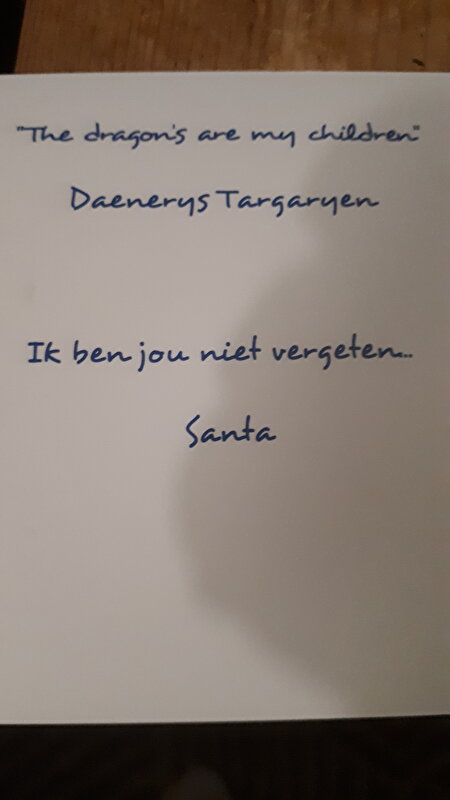 "The dragon's are my children"
Daenerys Targaryen
Ik ben jou niet vergeten...
Santa